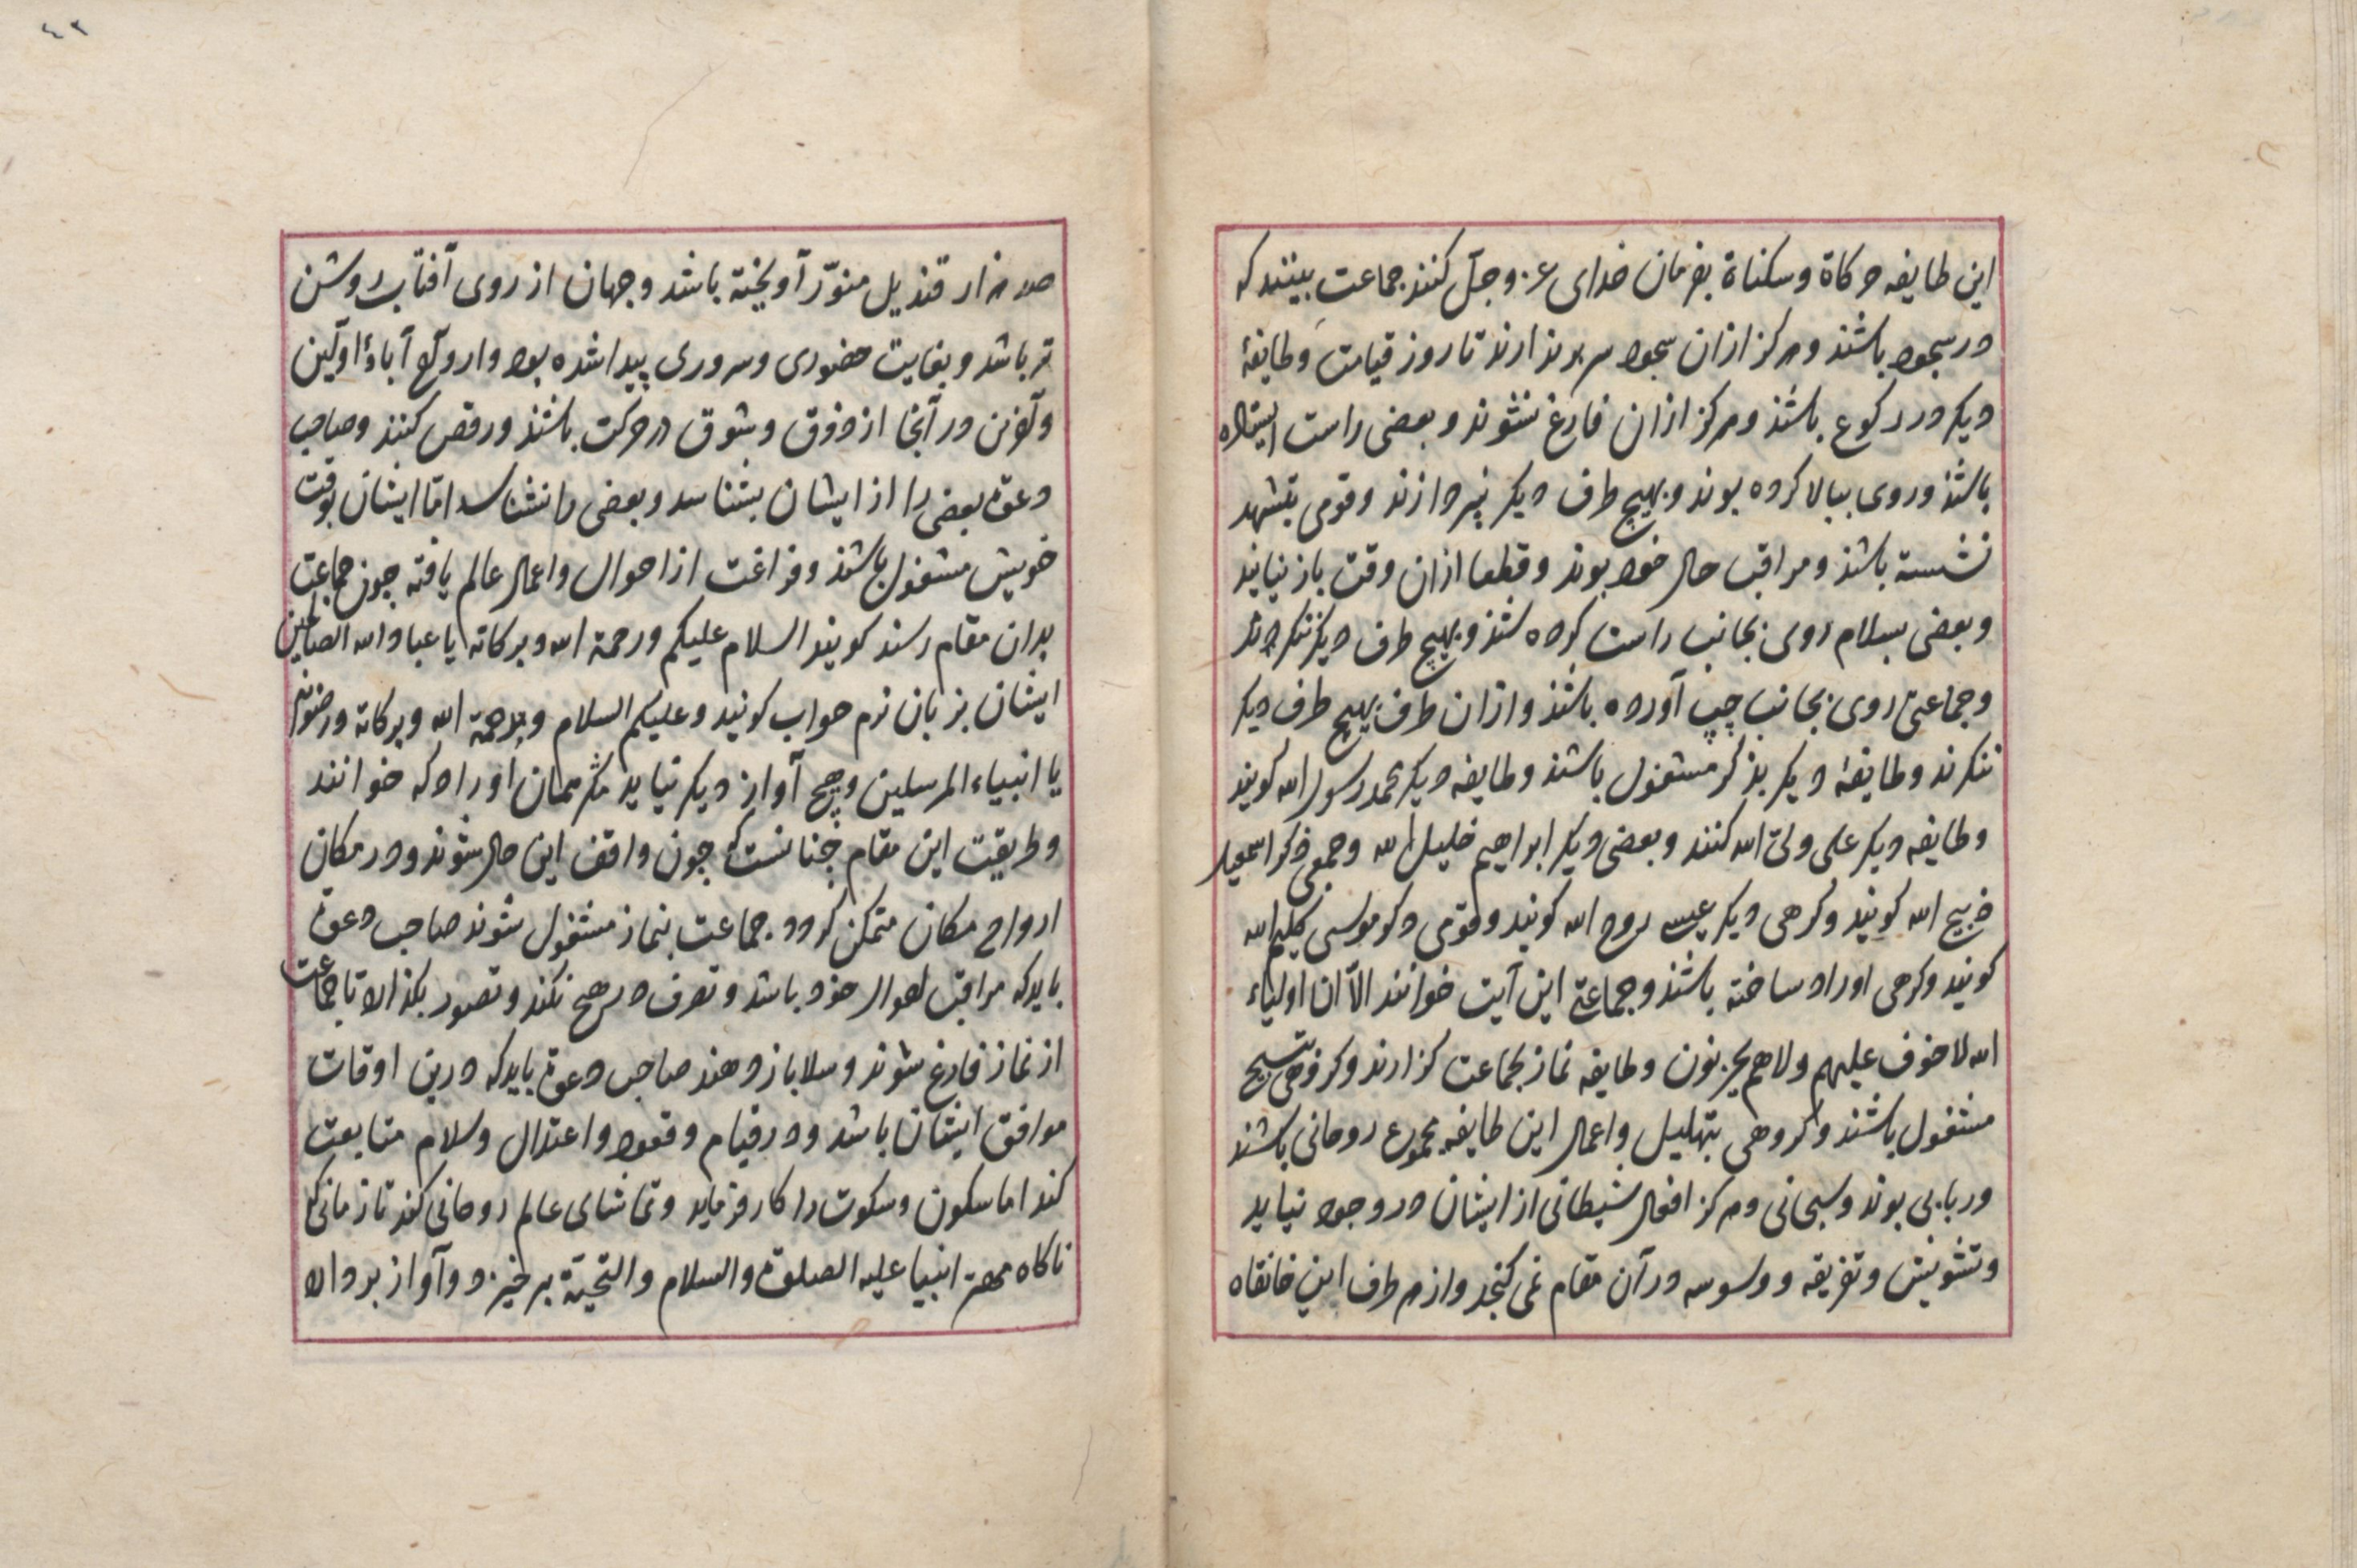 این طایفه حرکاة و سکناة بفرمان خدای عز وجل کنند جماعت بینند که
در سجود باشند و هرکز ازان سجود سر برندارند تا روز قیامت و طایفهٔ
دیکر در رکوع باشند و هرکز ازان فارغ نشوند و بعضی راست ایستاده
باشند و روی ببالا کرده بوند و بهیچ طرف دیکر نپردازند و قومی بتشهد
نشسته باشند و مراقب حال خود بوند و قطعا ازان وقت باز نیایند
و بعضی بسلام روی بجانب راست کرده باشند و بهیچ طرف دیکر ننکرند
و جماعتی روی بجانب چپ آورده باشند و ازان طرف بهیچ طرف دیکر
ننکرند و طایفهٔ دیکر بذکر مشغول باشند و طایفه دیکر محمد رسول الله کویند
و طایفه دیکر علی ولی الله کنند و بعضی دیکر ابراهیم خلیل الله و جمعی ذکر اسمعیل
ذبیح الله کویند و کرهی دیکر عیسی روح الله کویند و قومی ذکر موسی کلیم الله
کویند و کرهی اوراد ساخته باشند و جماعتی این آیت خوانند الّا ان اولیاء
الله لا خوف علیهم ولا هم یحزنون و طایفه نماز بجماعت کزارند و کروهی بتسبیح
مشغول باشند و کروهی بتهلیل و اعمال این طایفه مجموع روحانی باشند
و ربانی بوند و سبحانی و هرکز افعال شیطانی از ایشان در وجود نیاید
و تشویش و تفریقه و وسوسه در آن مقام نمی کنجد و از هر طرف این خانقاه
٤٢
صد هزار قندیل منوّر آویخته باشد و جهان از روی آفتاب روشن
تر باشد و بغایت حضوری و سروری پیدا شده بود و ارواح آباء اولین
و آخرین در آنجا از ذوق و شوق در حرکت باشند و رقص کنند و صاحب
دعوة بعضی را از ایشان بشناسد و بعضی را نشناسد امّا ایشان بوقت
خویش مشغول باشند و فراغت از احوال و اعمال عالم یافته چون جماعت
بدان مقام رسند کویند السلام علیکم ورحمة الله وبرکاته یا عباد الله الصالحین
ایشان بزبان نرم جواب کویند وعلیکم السلام ورحمة الله وبرکاته ورضوانه
یا انبیاء المرسلین و هیچ آواز دیکر نیاید مکر همان اوراد که خوانند
و طریقت این مقام چنانست که چون واقف این حال شوند و در مکان
ارواح مکان متمکن کردد جماعت بنماز مشغول شوند صاحب دعوة
باید که مراقب احوال خود باشد و تصرف در هیچ نکند و تصور بکذارد تا جماعت
از نماز فارغ شوند و سلا باز دهند صاحب دعوة باید که درین اوقات
موافق ایشان باشد و در قیام و قعود و اعتدال و سلام متابعت
کند اما سکون و سکوت را کار فرماید و تماشای عالم روحانی کند تا زمانی که
ناکاه مهتر انبیا علیه الصلوة والسلام والتحیّة برخیزد و آواز بردارد